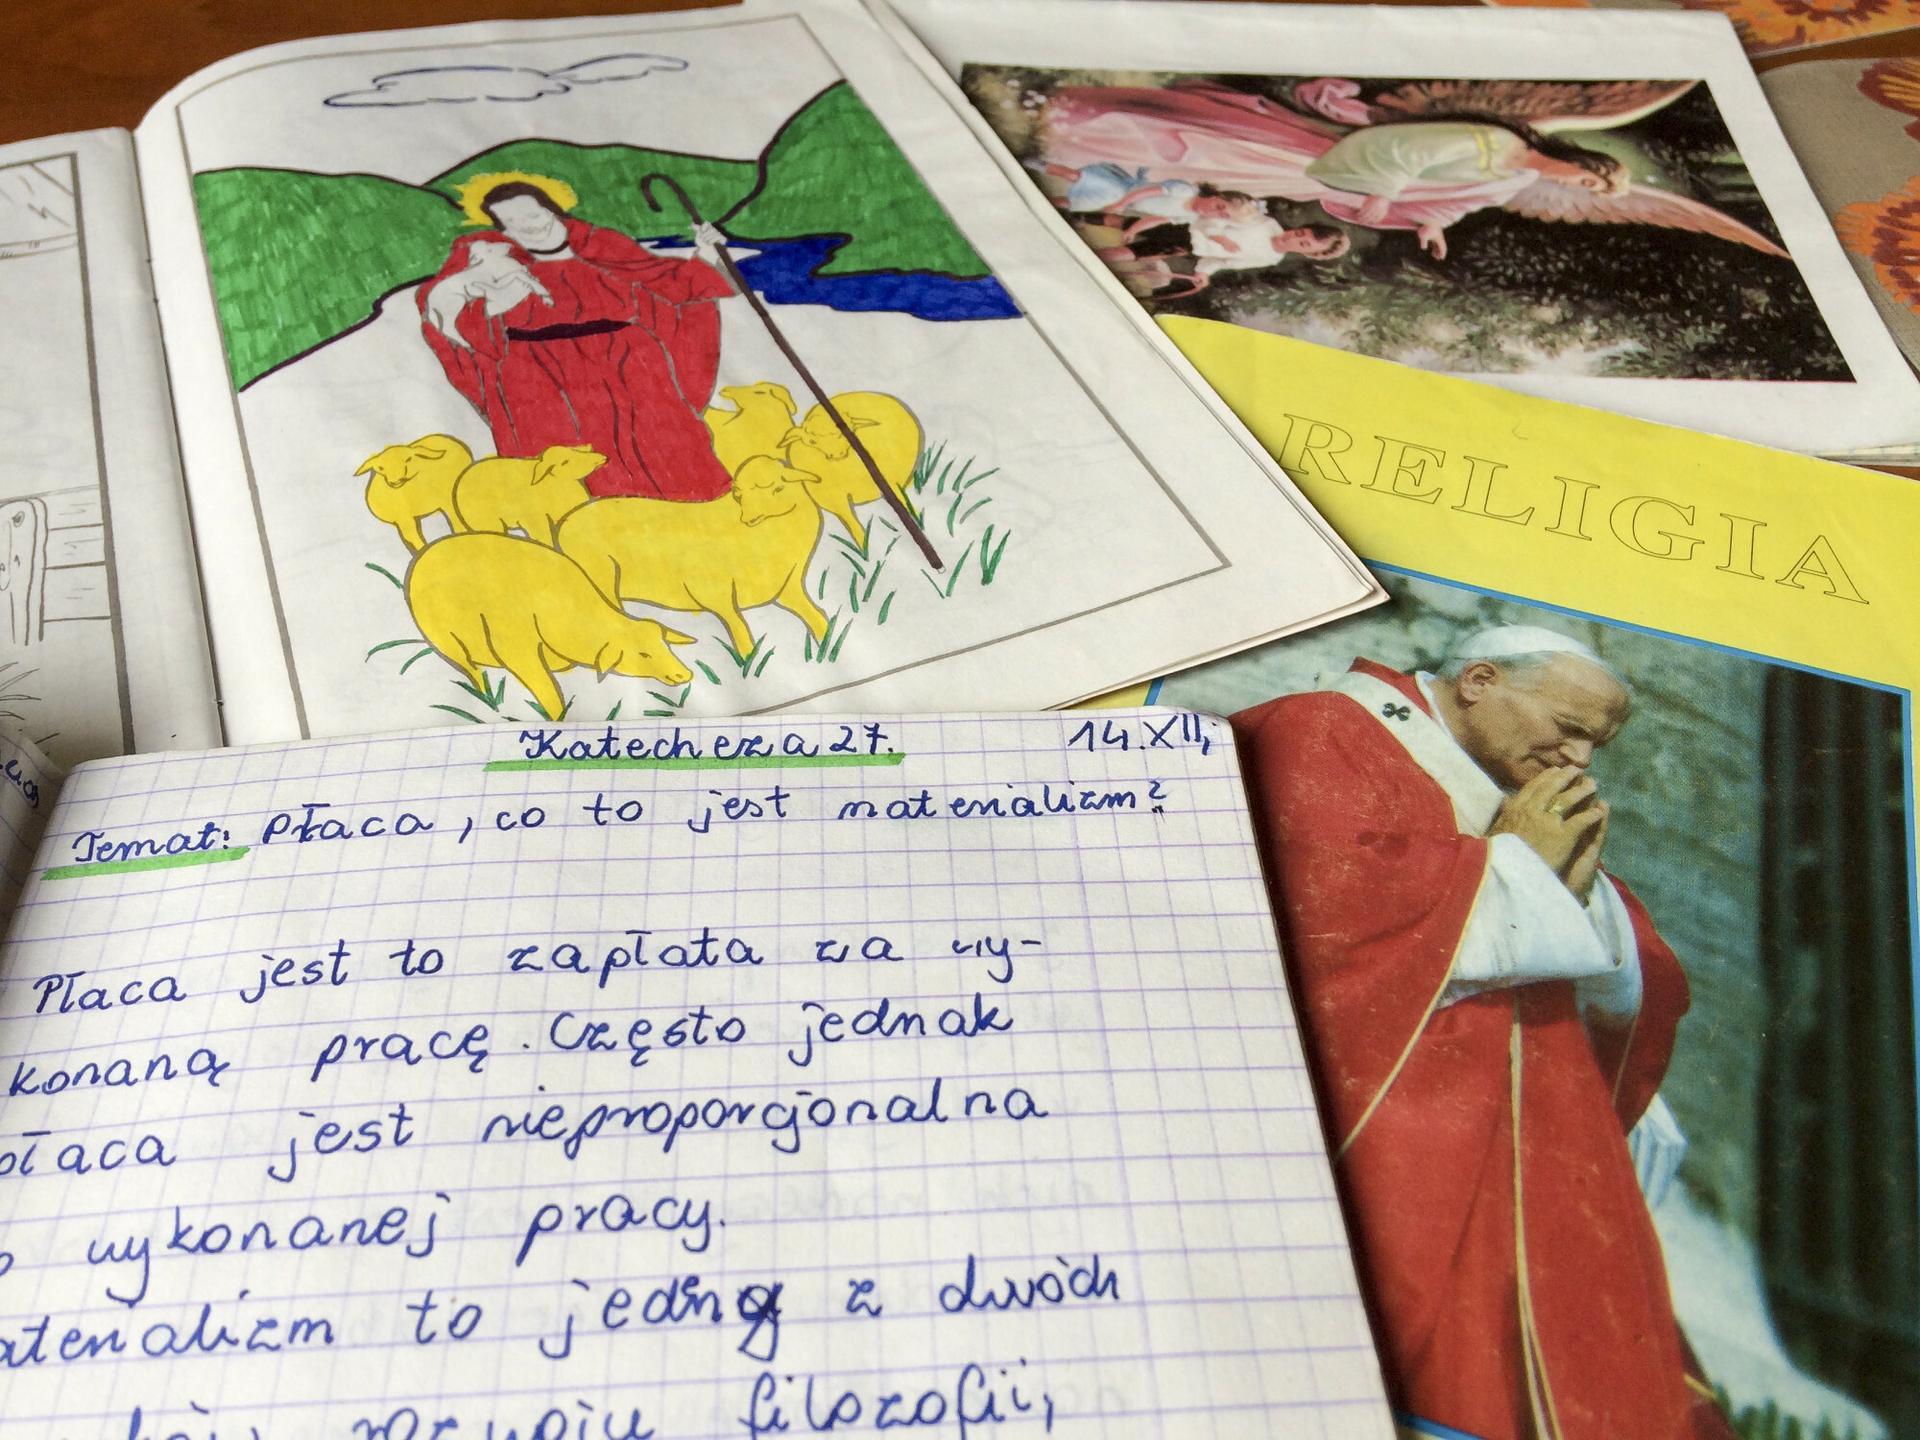 RELIGIA
Katecheza 27. 14.XII,
Temat: Płaca, co to jest materializm?
Płaca jest to zapłata za wy-
konaną pracę. Często jednak
płaca jest nieproporcjonalna
wykonanej pracy.
materializm to jedną z dwóch
rozwoju filozofii,